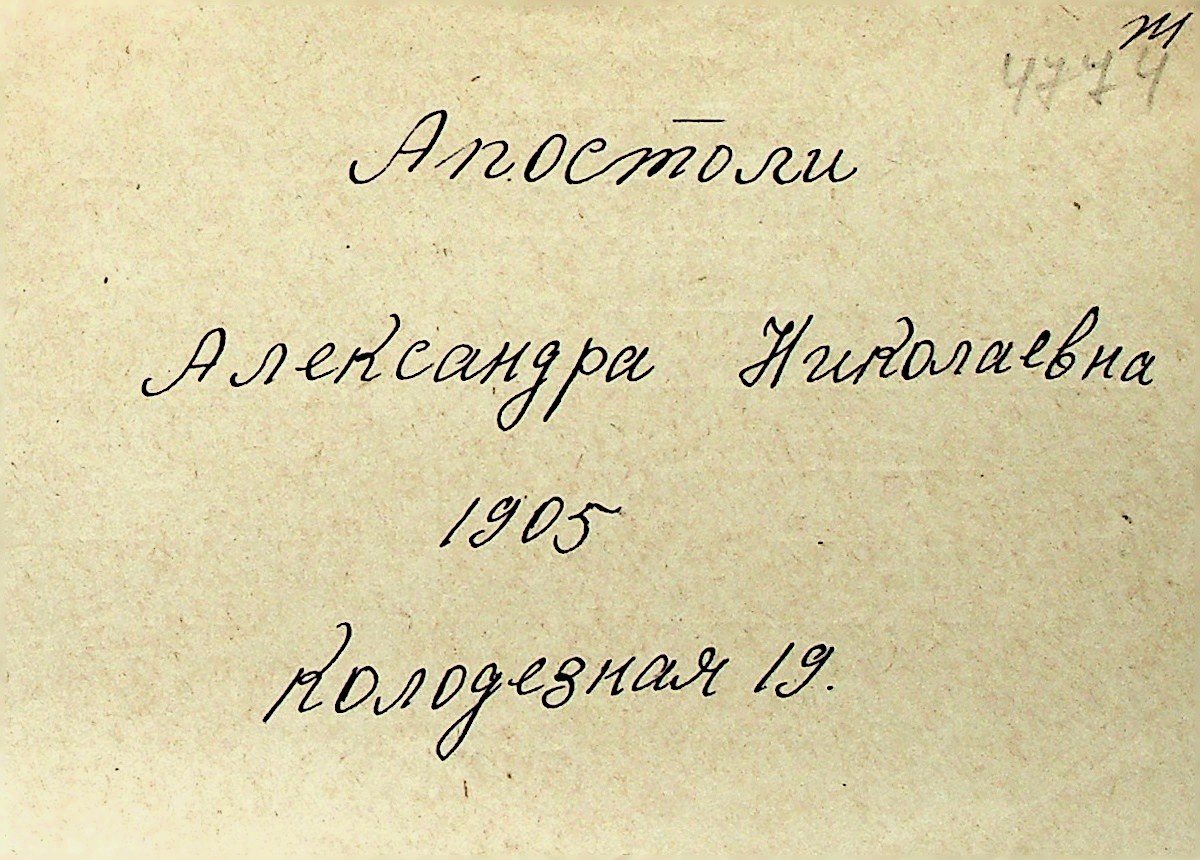 т
4774
Апостоли
Александра Николаевна
1905
Колодезная 19.